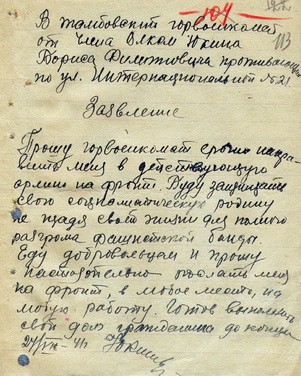 -104-
113
В Тамбовский горвоенкомат
от члена ВЛКСМ Юкина
Бориса Филипповича проживающ
по ул. Интернациональной №21
Заявление
Прошу горвоенкомат срочно напра-
вить меня в действующую
армию на фронт. Буду защищать
свою социалистическую родину
не щадя своей жизни для полного
разгрома фашистской банды.
Еду добровольцем и прошу
настоятельно послать меня
на фронт, в любое место, на
любую работу. Готов выполнить
свой долг гражданина до конца
41